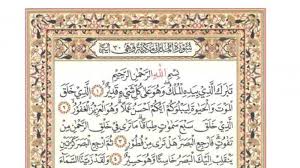 سورة الملك مكية وهي ٣٠ آية
بسم الله الرحمن الرحيم
تبرك الذي بيده الملك وهو على كل شيء قدير ١ الذي خلق
الموت والحيوة ليبلوكم أيكم أحسن عملا وهو العزيز الغفور ٢
الذي خلق سبع سموت طباقا ما ترى في خلق الرحمن من
تفوت فارجع البصر هل ترى من فطور ٣ ثم ارجع البصر كرتين
ينقلب إليك البصر خاسئا وهو حسير ٤ ولقد زينا السماء